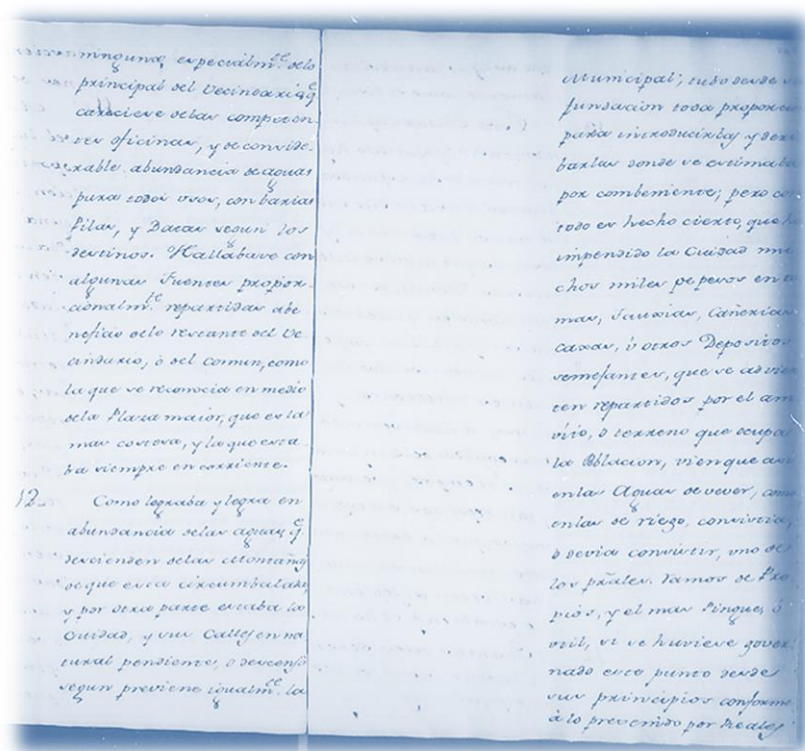 ninguna, especialm.te delo
principal del Vecindario, q.e
careciese delas competen
tes oficinas, y de conside-
rable abundancia de aguas
para todos usos, con barias
Pilas, y Datas segun los
destinos. Hallabase con
algunas Fuentes propor-
cionalm.te repartidas abe
neficio delo restante del Ve
cindario, ò del comun, como
la que se reconocia en medio
dela Plaza maior, que es la
mas costosa, y la que esta-
ba siempre en corriente.
12_ Como lograba y logra en
abundancia delas aguas q.e
descienden delas Montañas
de que està circumbalada,
y por otra parte estaba la
Ciudad, y sus Calles en na
tural pendiente, o descenso
segun previene igualm.te la
Municipal; tubo desde
fundacion toda proporcion
para introducirlas y
donde se estimaba
por combeniente; pero con
todo es hecho cierto, que
impendido la Ciudad mu
chos miles pe pesos en to
mas, Tauxias, Cañerias
caxas, ù otros Depositos
semejantes, que se advier
ten repartidos por el am
vito, ò terreno que ocupa
la Poblacion, vien que asi
enlas Aguas de vever, como
enlas de riego, consistia,
ò devia consistir, uno de
los prâles. Ramos de Pro
pios, y el mas Pingue, ò
util, si se huviese gover
nado este punto desde
sus principios conforme
à lo prevenido por Reales